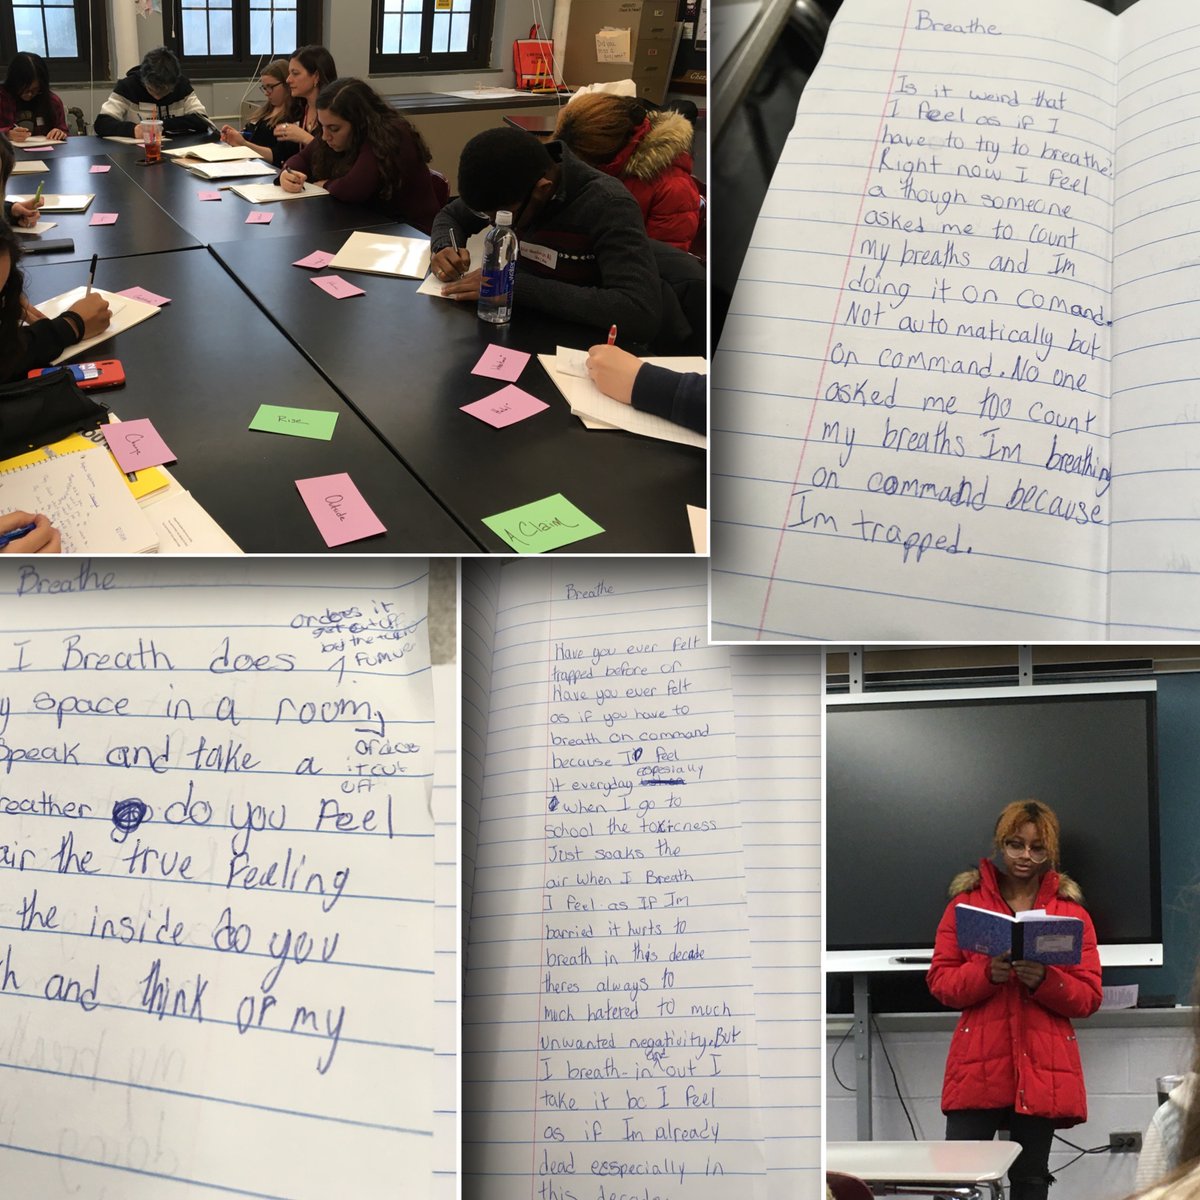 Rise
Change
Attitude
A Claim
Breathe
Is it weird that
I feel as if I
have to try to breathe?
Right now I feel
a though someone
asked me to count
my breaths and Im
doing it on comand.
Not automatically but
on command. No one
asked me too count
my breaths Im breathing
on command because
Im trapped.
Breathe
or does it
by the
I Breath does
y space in a room,
Speak and take a
or does
it cut
off
reather do you feel
air the true feeling
the inside do you
h and think of my
Breathe
Have you ever felt
trapped before or
Have you ever felt
as if you have to
breath on command
because I feel
It everyday especially
when I go to
school the toxicness
Just soaks the
air when I Breath
I feel as if Im
barried it hurts to
breath in this decade
theres always to
much hatered to much
unwanted negativity. But
I breath-in and out I
take it bc I feel
as if Im already
dead ecspecially in
this decade